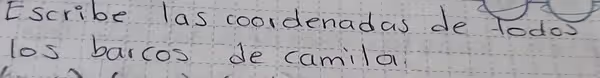 Escribe las coordenadas de Todos
los barcos de camila.